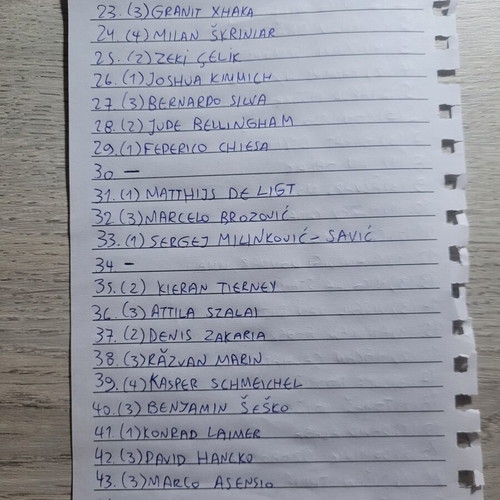 23. (3) GRANIT XHAKA
24. (4) MILAN ŠKRINIAR
25. (2) ZEKİ ÇELİK
26. (1) JOSHUA KIMMICH
27. (3) BERNARDO SILVA
28. (2) JUDE BELLINGHAM
29. (1) FEDERICO CHIESA
30. —
31. (1) MATTHIJS DE LIGT
32. (3) MARCELO BROZOVIĆ
33. (1) SERGEJ MILINKOVIĆ - SAVIĆ
34. -
35. (2) KIERAN TIERNEY
36. (3) ATTILA SZALAI
37. (2) DENIS ZAKARIA
38. (3) RĂZVAN MARIN
39. (4) KASPER SCHMEICHEL
40. (3) BENJAMIN ŠEŠKO
41. (1) KONRAD LAIMER
42. (3) DAVID HANCKO
43. (3) MARCO ASENSIO